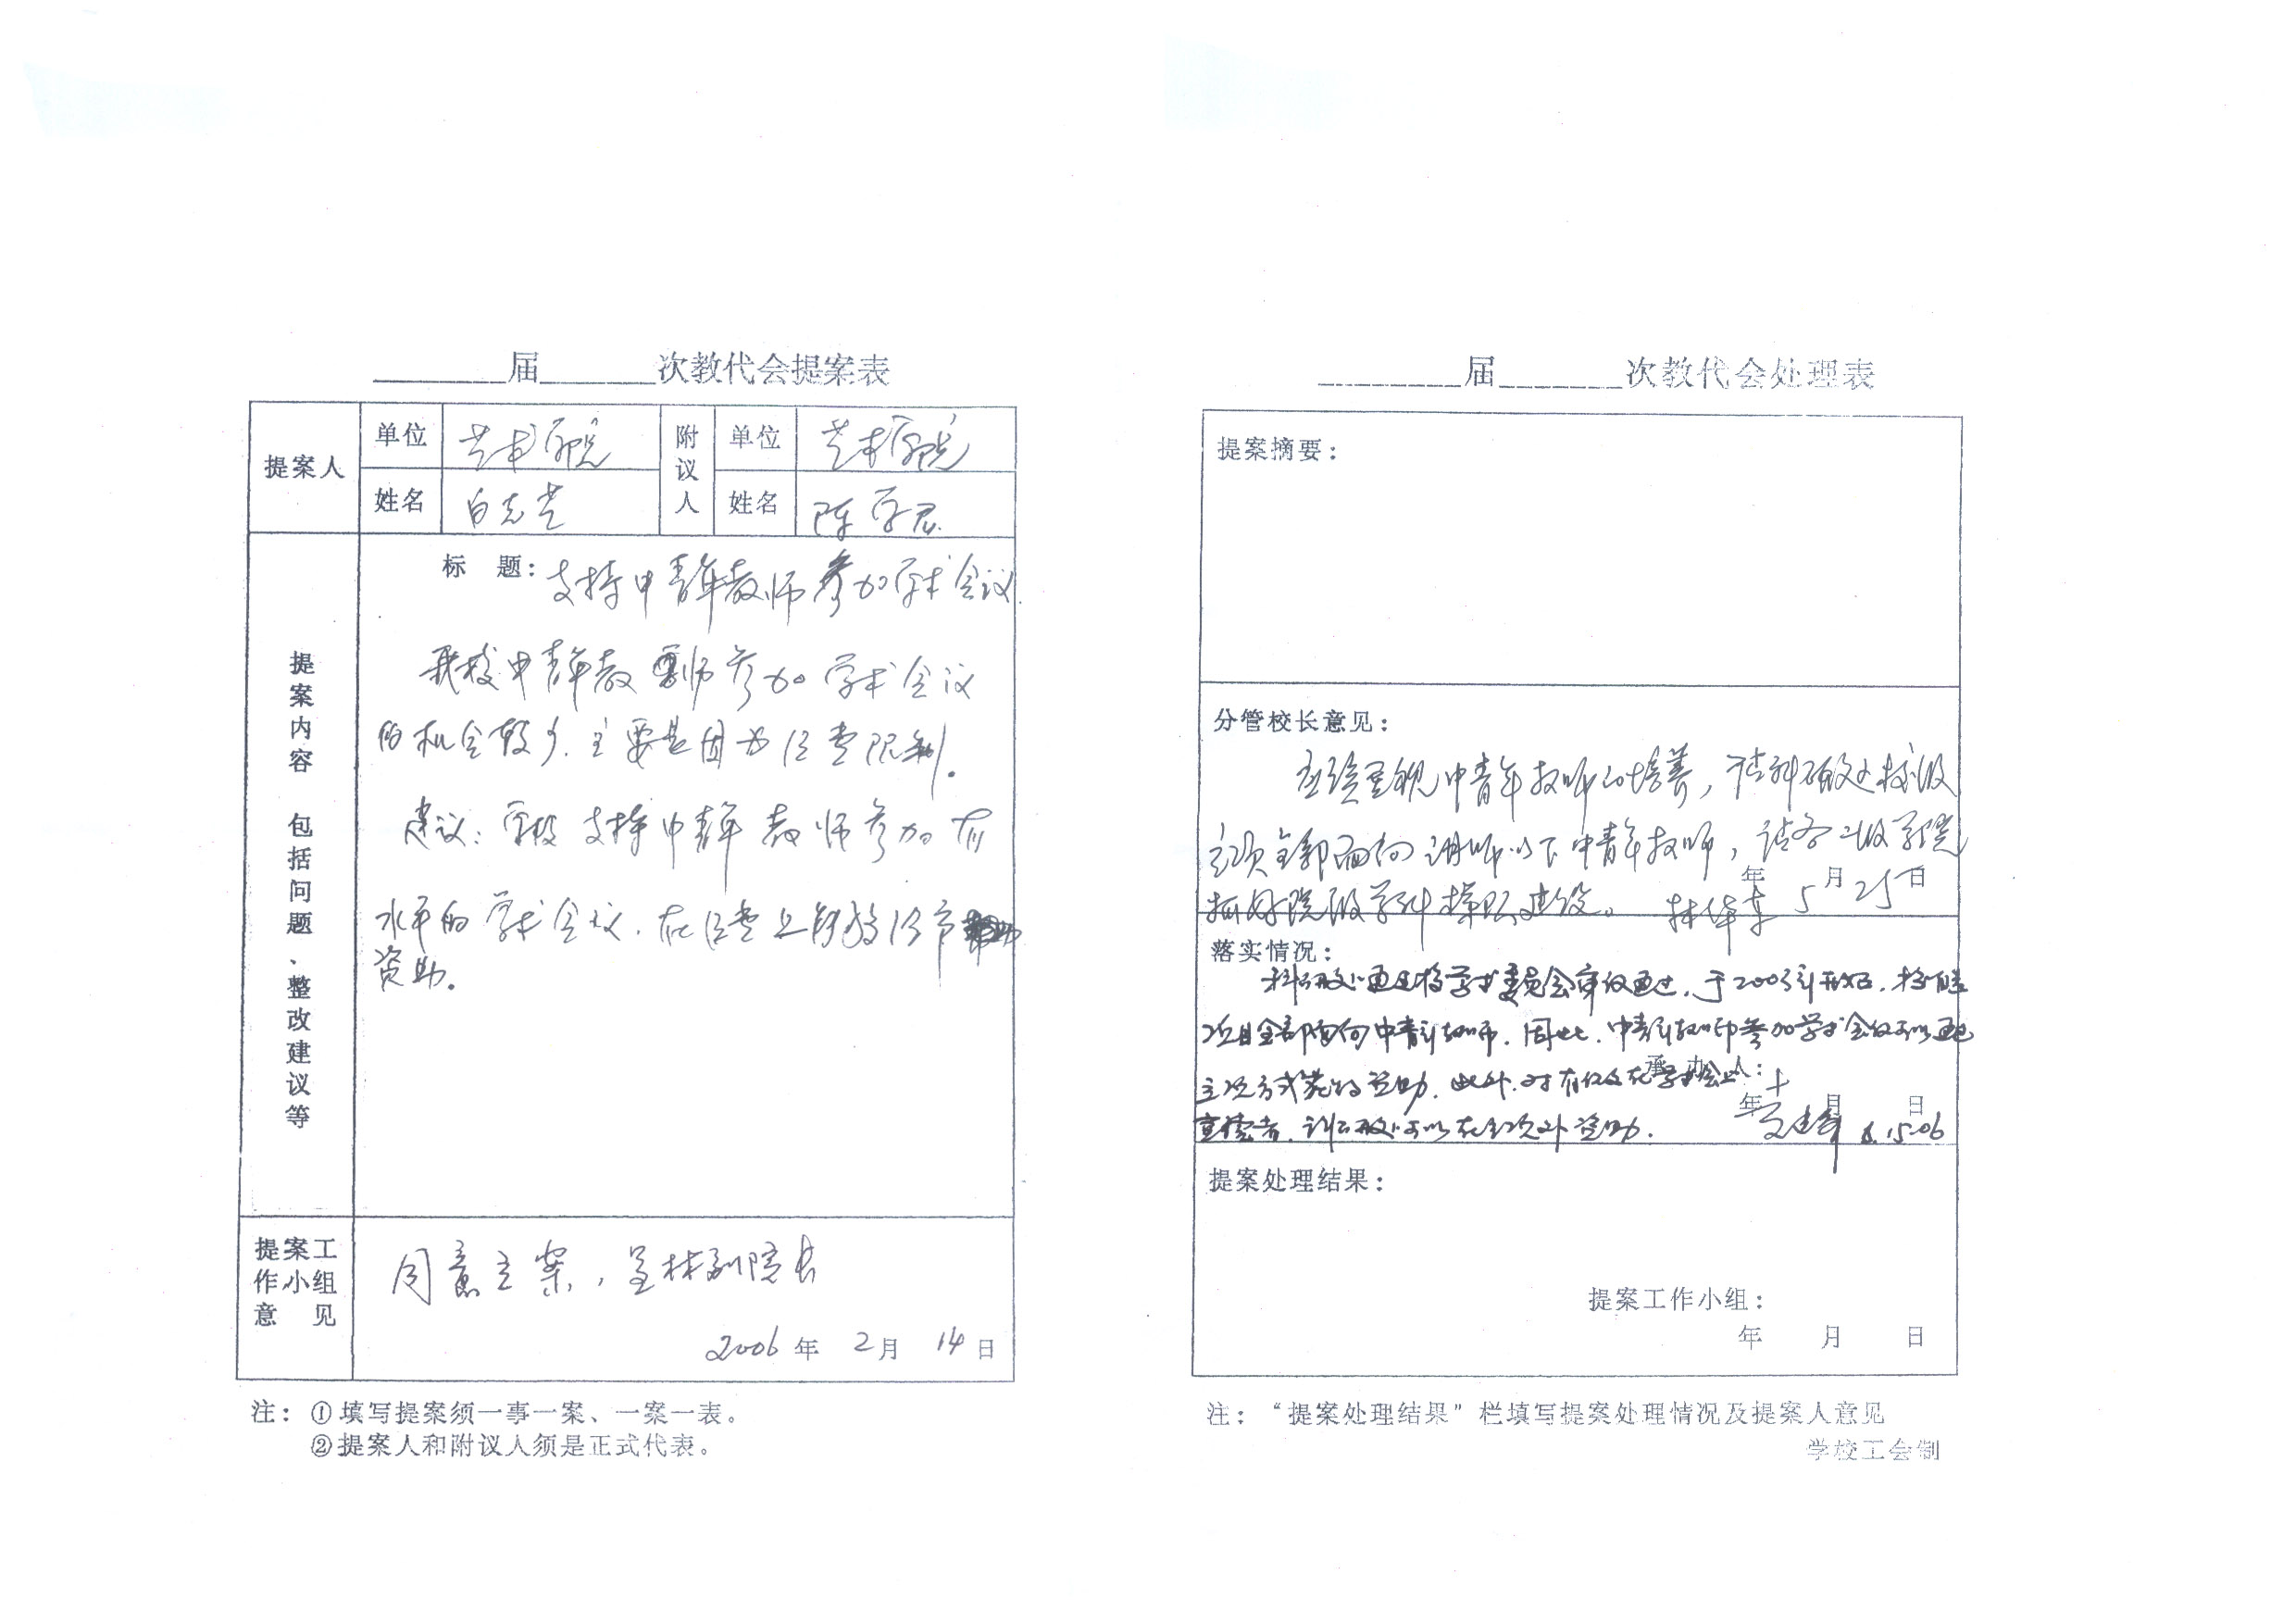 届 次教代会提案表
提案人 单位 艺术学院 附议人 单位 艺术学院
姓名 白志 姓名 陈学
提案内容 包括问题、整改建议等
标 题：支持中青年教师参加学术会议
我校中青年教师参加学术会议
的机会较少，主要是因为经费限制。
建议：学校支持中青年教师参加有
水平的学术会议，在经费上能够给予
资助。
提案工作小组意见
同意立案，呈林副院长
2006年 2月 14日
注：①填写提案须一事一案、一案一表。
②提案人和附议人须是正式代表。
届 次教代会处理表
提案摘要：
分管校长意见：
应该重视中青年教师的培养，请科研处校级
立项全部面向讲师以下中青年教师，请各二级学院
抓好院级学科梯队建设。 林华东
年 5月25日
落实情况：
科研处通过校学术委员会审议通过，于2005年开始，校
项目全部面向中青年教师。因此，中青年教师参加学术会议可以通过
立项方式获得资助。此外，对有论文在学术会上
宣读者，科研处可以在立项外资助。
承办人：
年 月 日
6.15.06
提案处理结果：
提案工作小组：
年 月 日
注：“提案处理结果”栏填写提案处理情况及提案人意见
学校工会制